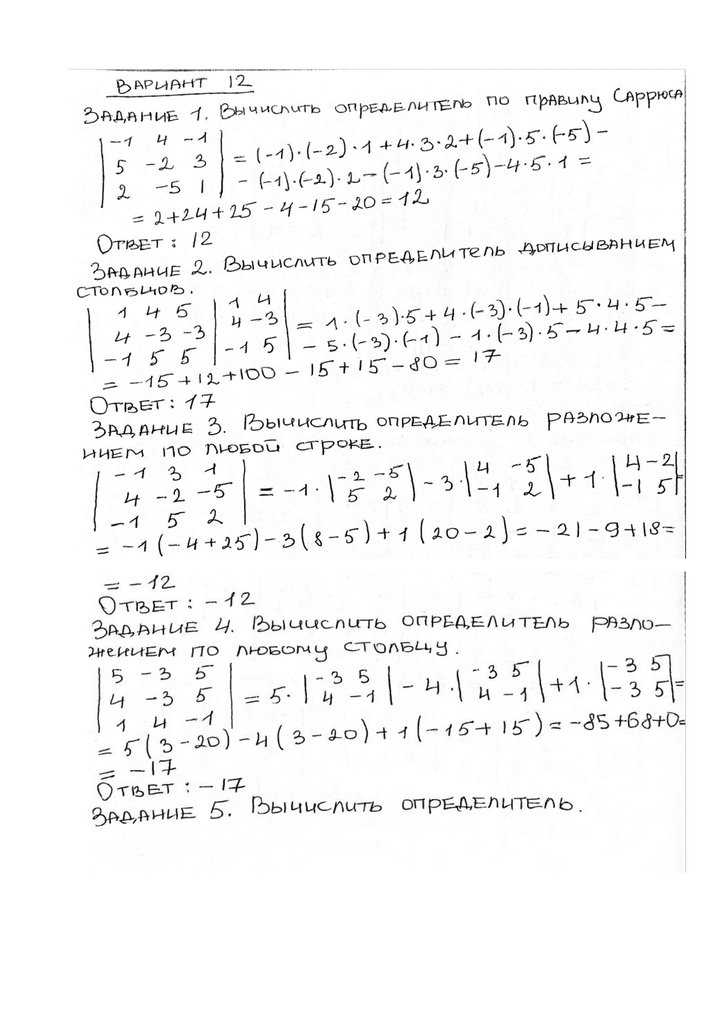 ВАРИАНТ 12
ЗАДАНИЕ 1. ВЫЧИСЛИТЬ ОПРЕДЕЛИТЕЛЬ ПО ПРАВИЛУ САРРЮСА
|-1 4 -1|
|5 -2 3| = (-1)·(-2)·1+4·3·2+(-1)·5·(-5)-
|2 -5 1| - (-1)·(-2)·2-(-1)·3·(-5)-4·5·1 =
= 2+24+25-4-15-20=12
ОТВЕТ: 12
ЗАДАНИЕ 2. ВЫЧИСЛИТЬ ОПРЕДЕЛИТЕЛЬ ДОПИСЫВАНИЕМ
СТОЛБЦОВ.
|1 4 5| 1 4|
|4 -3 -3| 4 -3| = 1·(-3)·5+4·(-3)·(-1)+5·4·5-
|-1 5 5| -1 5| - 5·(-3)·(-1)-1·(-3)·5-4·4·5=
= -15+12+100-15+15-80=17
ОТВЕТ: 17
ЗАДАНИЕ 3. ВЫЧИСЛИТЬ ОПРЕДЕЛИТЕЛЬ РАЗЛОЖЕ-
НИЕМ ПО ЛЮБОЙ СТРОКЕ.
|-1 3 1|
|4 -2 -5| = -1·|-2 -5| -3·|4 -5| +1·|4 -2|=
|-1 5 2| |5 2| |-1 2| |-1 5|
= -1(-4+25)-3(8-5)+1(20-2)=-21-9+18=
= -12
ОТВЕТ: -12
ЗАДАНИЕ 4. ВЫЧИСЛИТЬ ОПРЕДЕЛИТЕЛЬ РАЗЛО-
ЖЕНИЕМ ПО ЛЮБОМУ СТОЛБЦУ.
|5 -3 5|
|4 -3 5| = 5·|-3 5| -4·|-3 5| +1·|-3 5|=
|1 4 -1| |4 -1| |4 -1| |-3 5|
= 5(3-20)-4(3-20)+1(-15+15)=-85+68+0=
= -17
ОТВЕТ: -17
ЗАДАНИЕ 5. ВЫЧИСЛИТЬ ОПРЕДЕЛИТЕЛЬ.